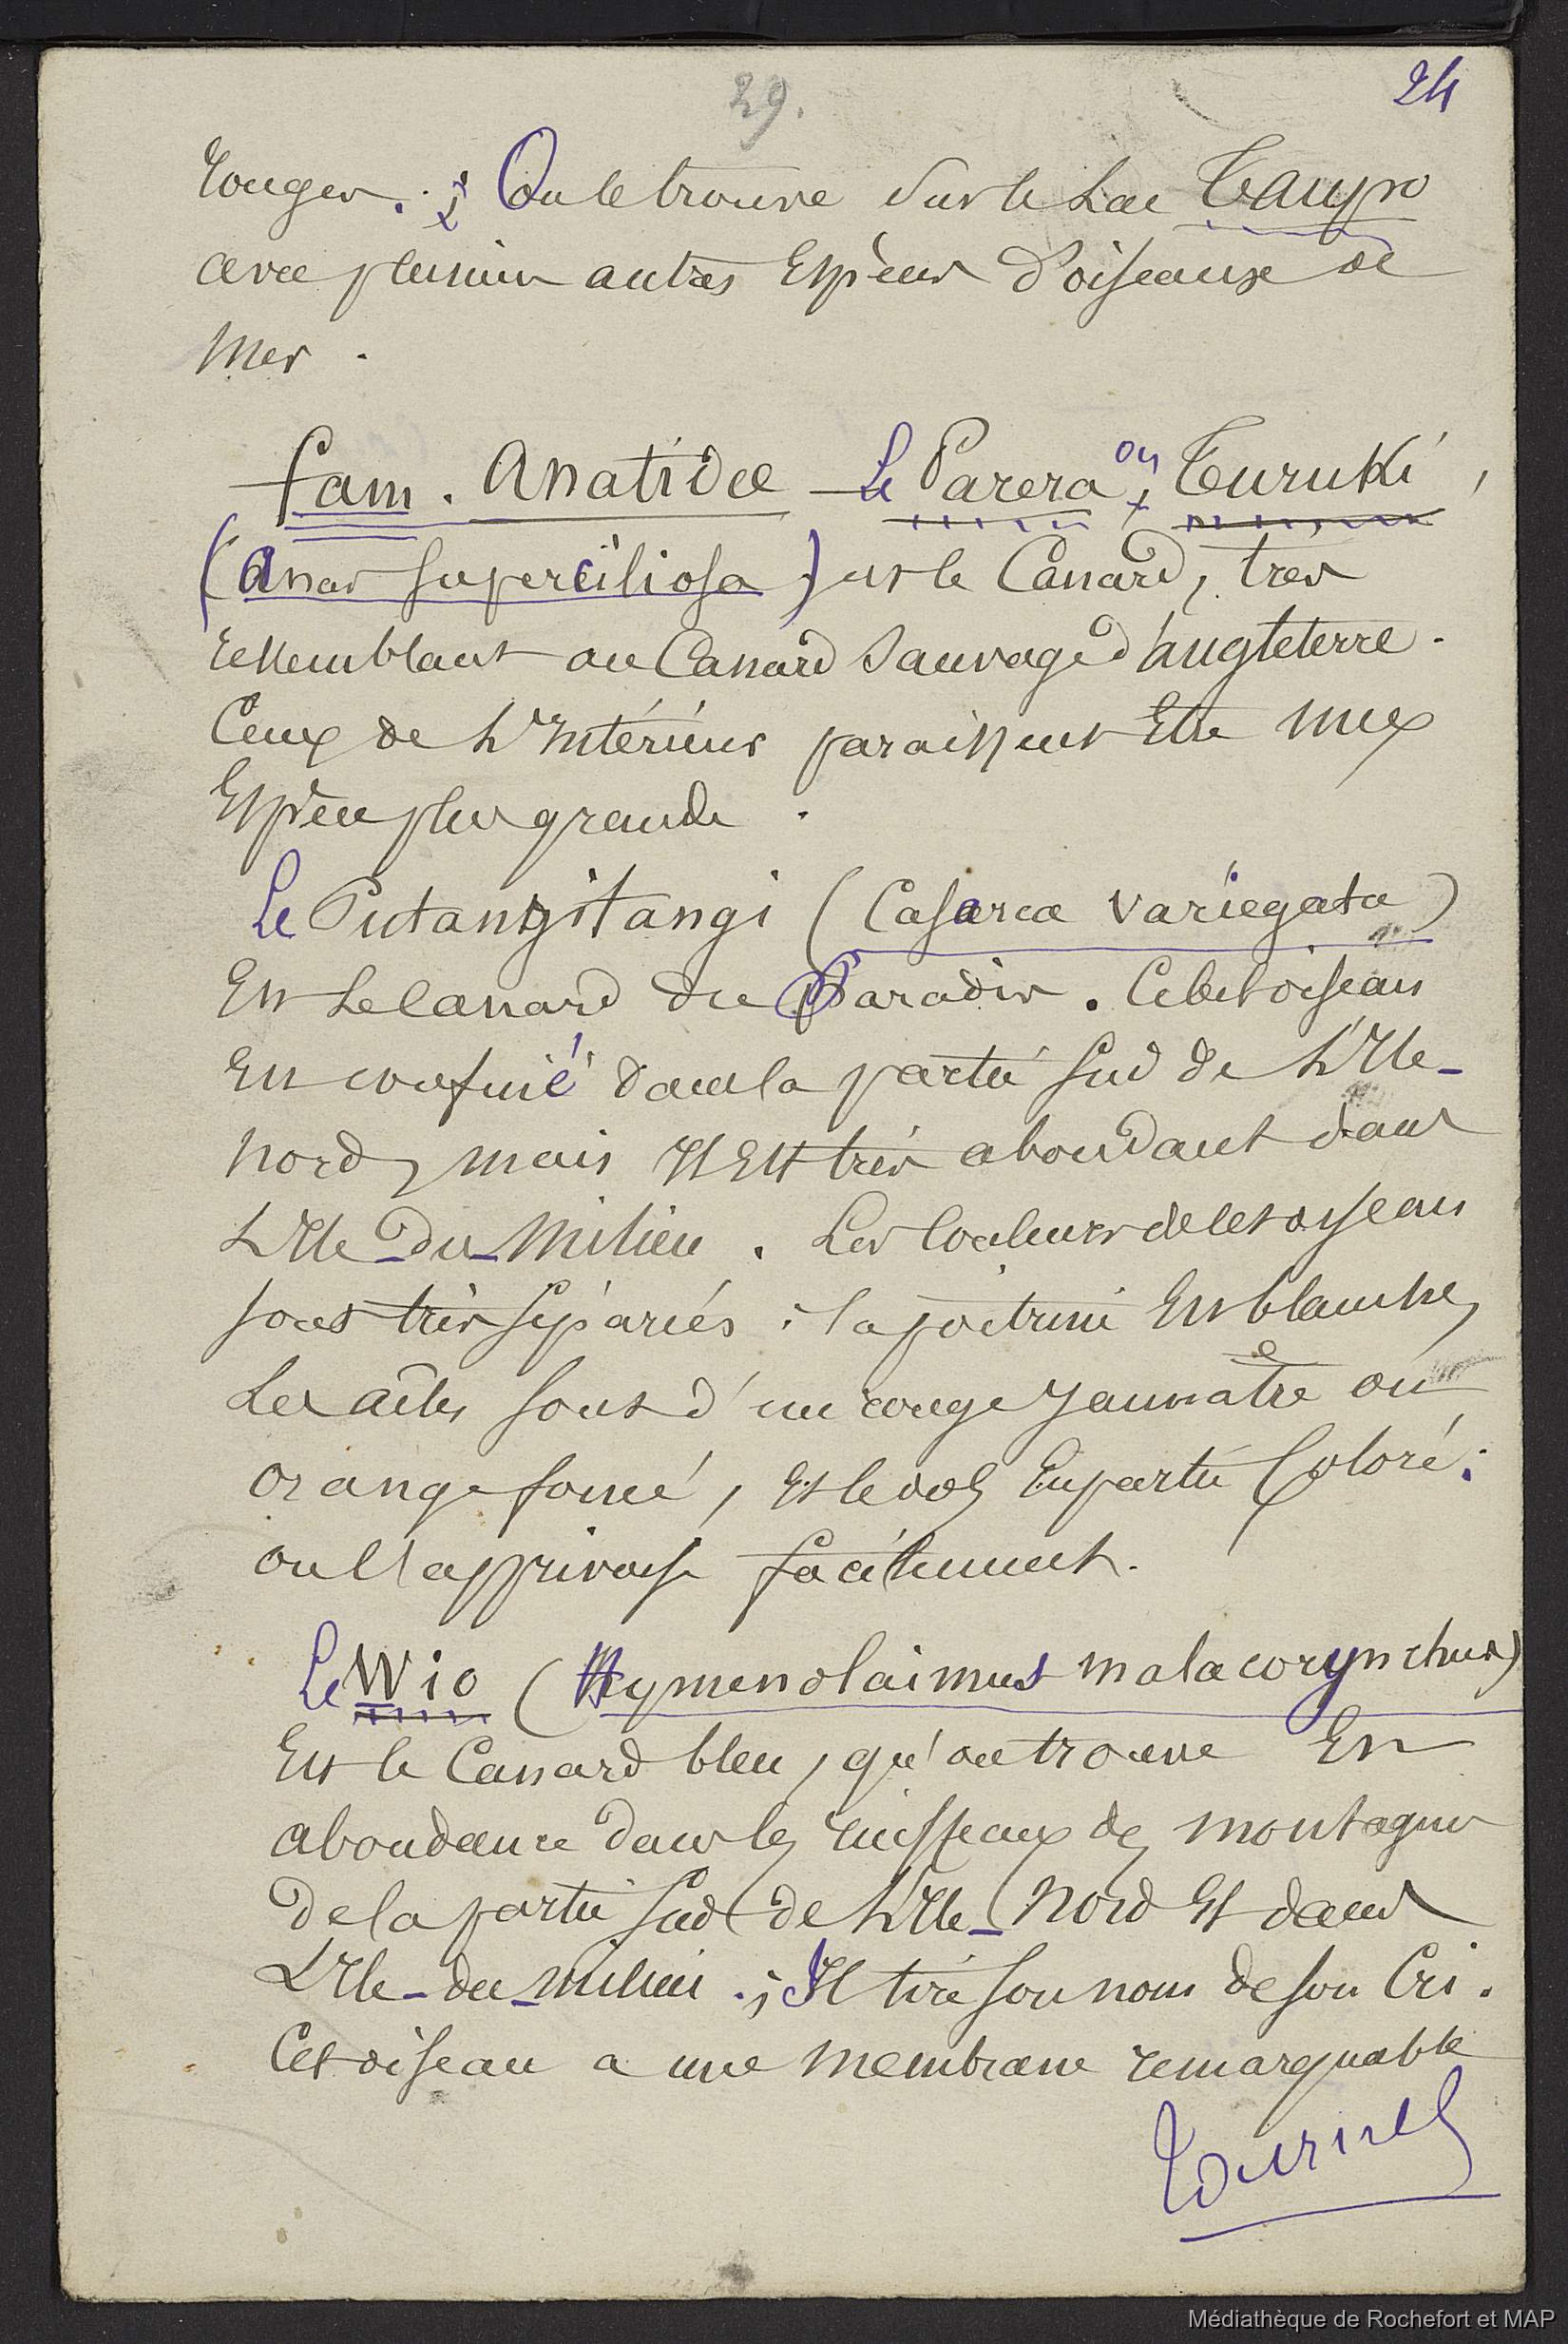 29.
24
rouges. ; On le trouve sur le Lac Taupo
avec plusieurs autres Espèces d'oiseaux de
Mer.
fam. Anatidæ - Le Parera ou Turuki,
(Anas superciliosa) est le Canard, tres
ressemblant au Canard Sauvage d'Angleterre.
Ceux de L'Intérieur paraissent Etre une
Espèce plus grande.
Le Putangitangi (Casarca variegata)
Est Le Canard du Paradis. Cebet oiseau
Est confiné dans la partie Sud de L'Ile-
Nord, mais Il Est très abondant dans
L'Ile-du-Milieu. Les Couleurs de cet oiseau
sont très séparées : la poitrine Est blanche,
Les aîles sont d'un rouge Jaunatre ou
orange foncé, Et le dos En partie Coloré;
on l'apprivoise facilement.
Le Wio (Hymenolaimus malacorynchus)
Est le Canard bleu, qu'on trouve En
abondance dans les ruisseaux de montagnes
De la partie Sud de L'Ile-Nord Et dans
L'Ile-du-milieu.; Il tire son nom de son Cri.
Cet oiseau a une membrane remarquable
Médiathèque de Rochefort et MAP